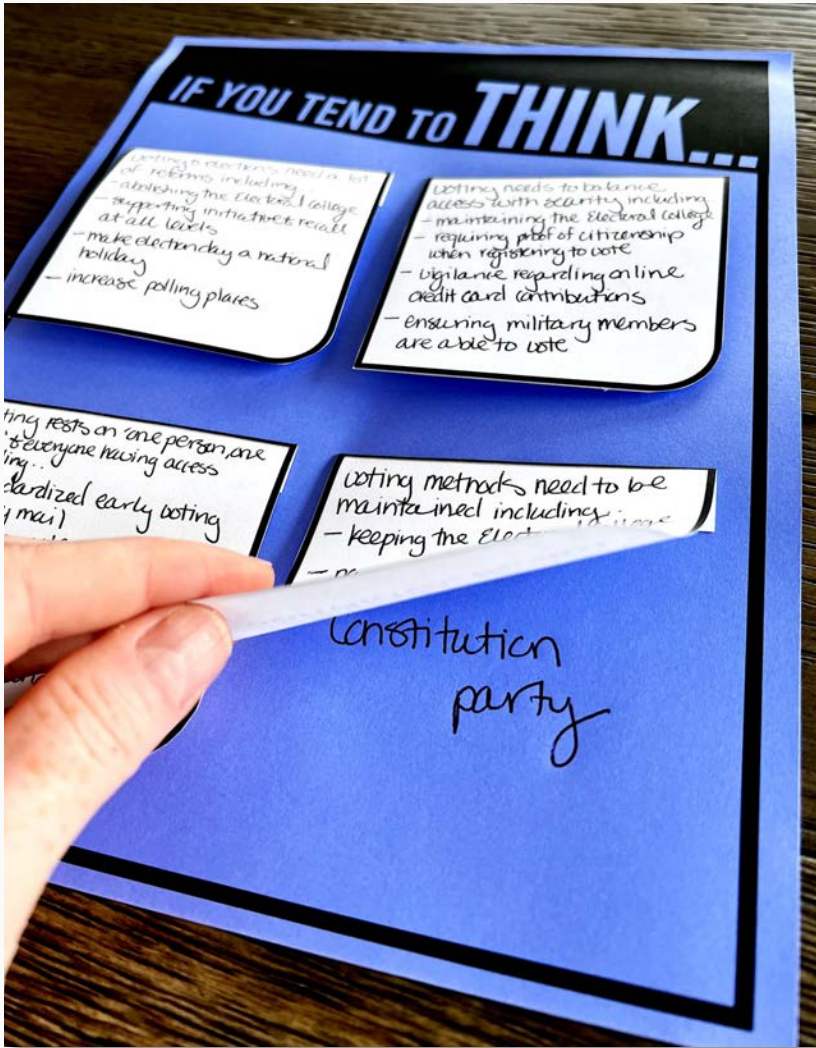 IF YOU TEND TO THINK...
voting & elections need a lot
of reforms including..
- abolishing the Electoral College
- supporting initiatives recall
at all levels
- make election day a national
holiday
- increase polling places
voting needs to balance
access with security including
- maintaining the Electoral College
- requiring proof of citizenship
when registering to vote
- vigilance regarding online
credit card contributions
- ensuring military members
are able to vote
ting rests on "one person, one
everyone having access
ing..
dardized early voting
y mail
voting methods need to be
maintained including..
- keeping the
Constitution
party